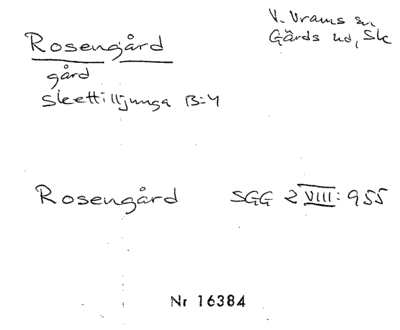 Rosengård
V. Vrams sn
Gärds hd, Sk
gård
Skettilljunga B=4
Rosengård SGG 2 VIII: 955
Nr 16384